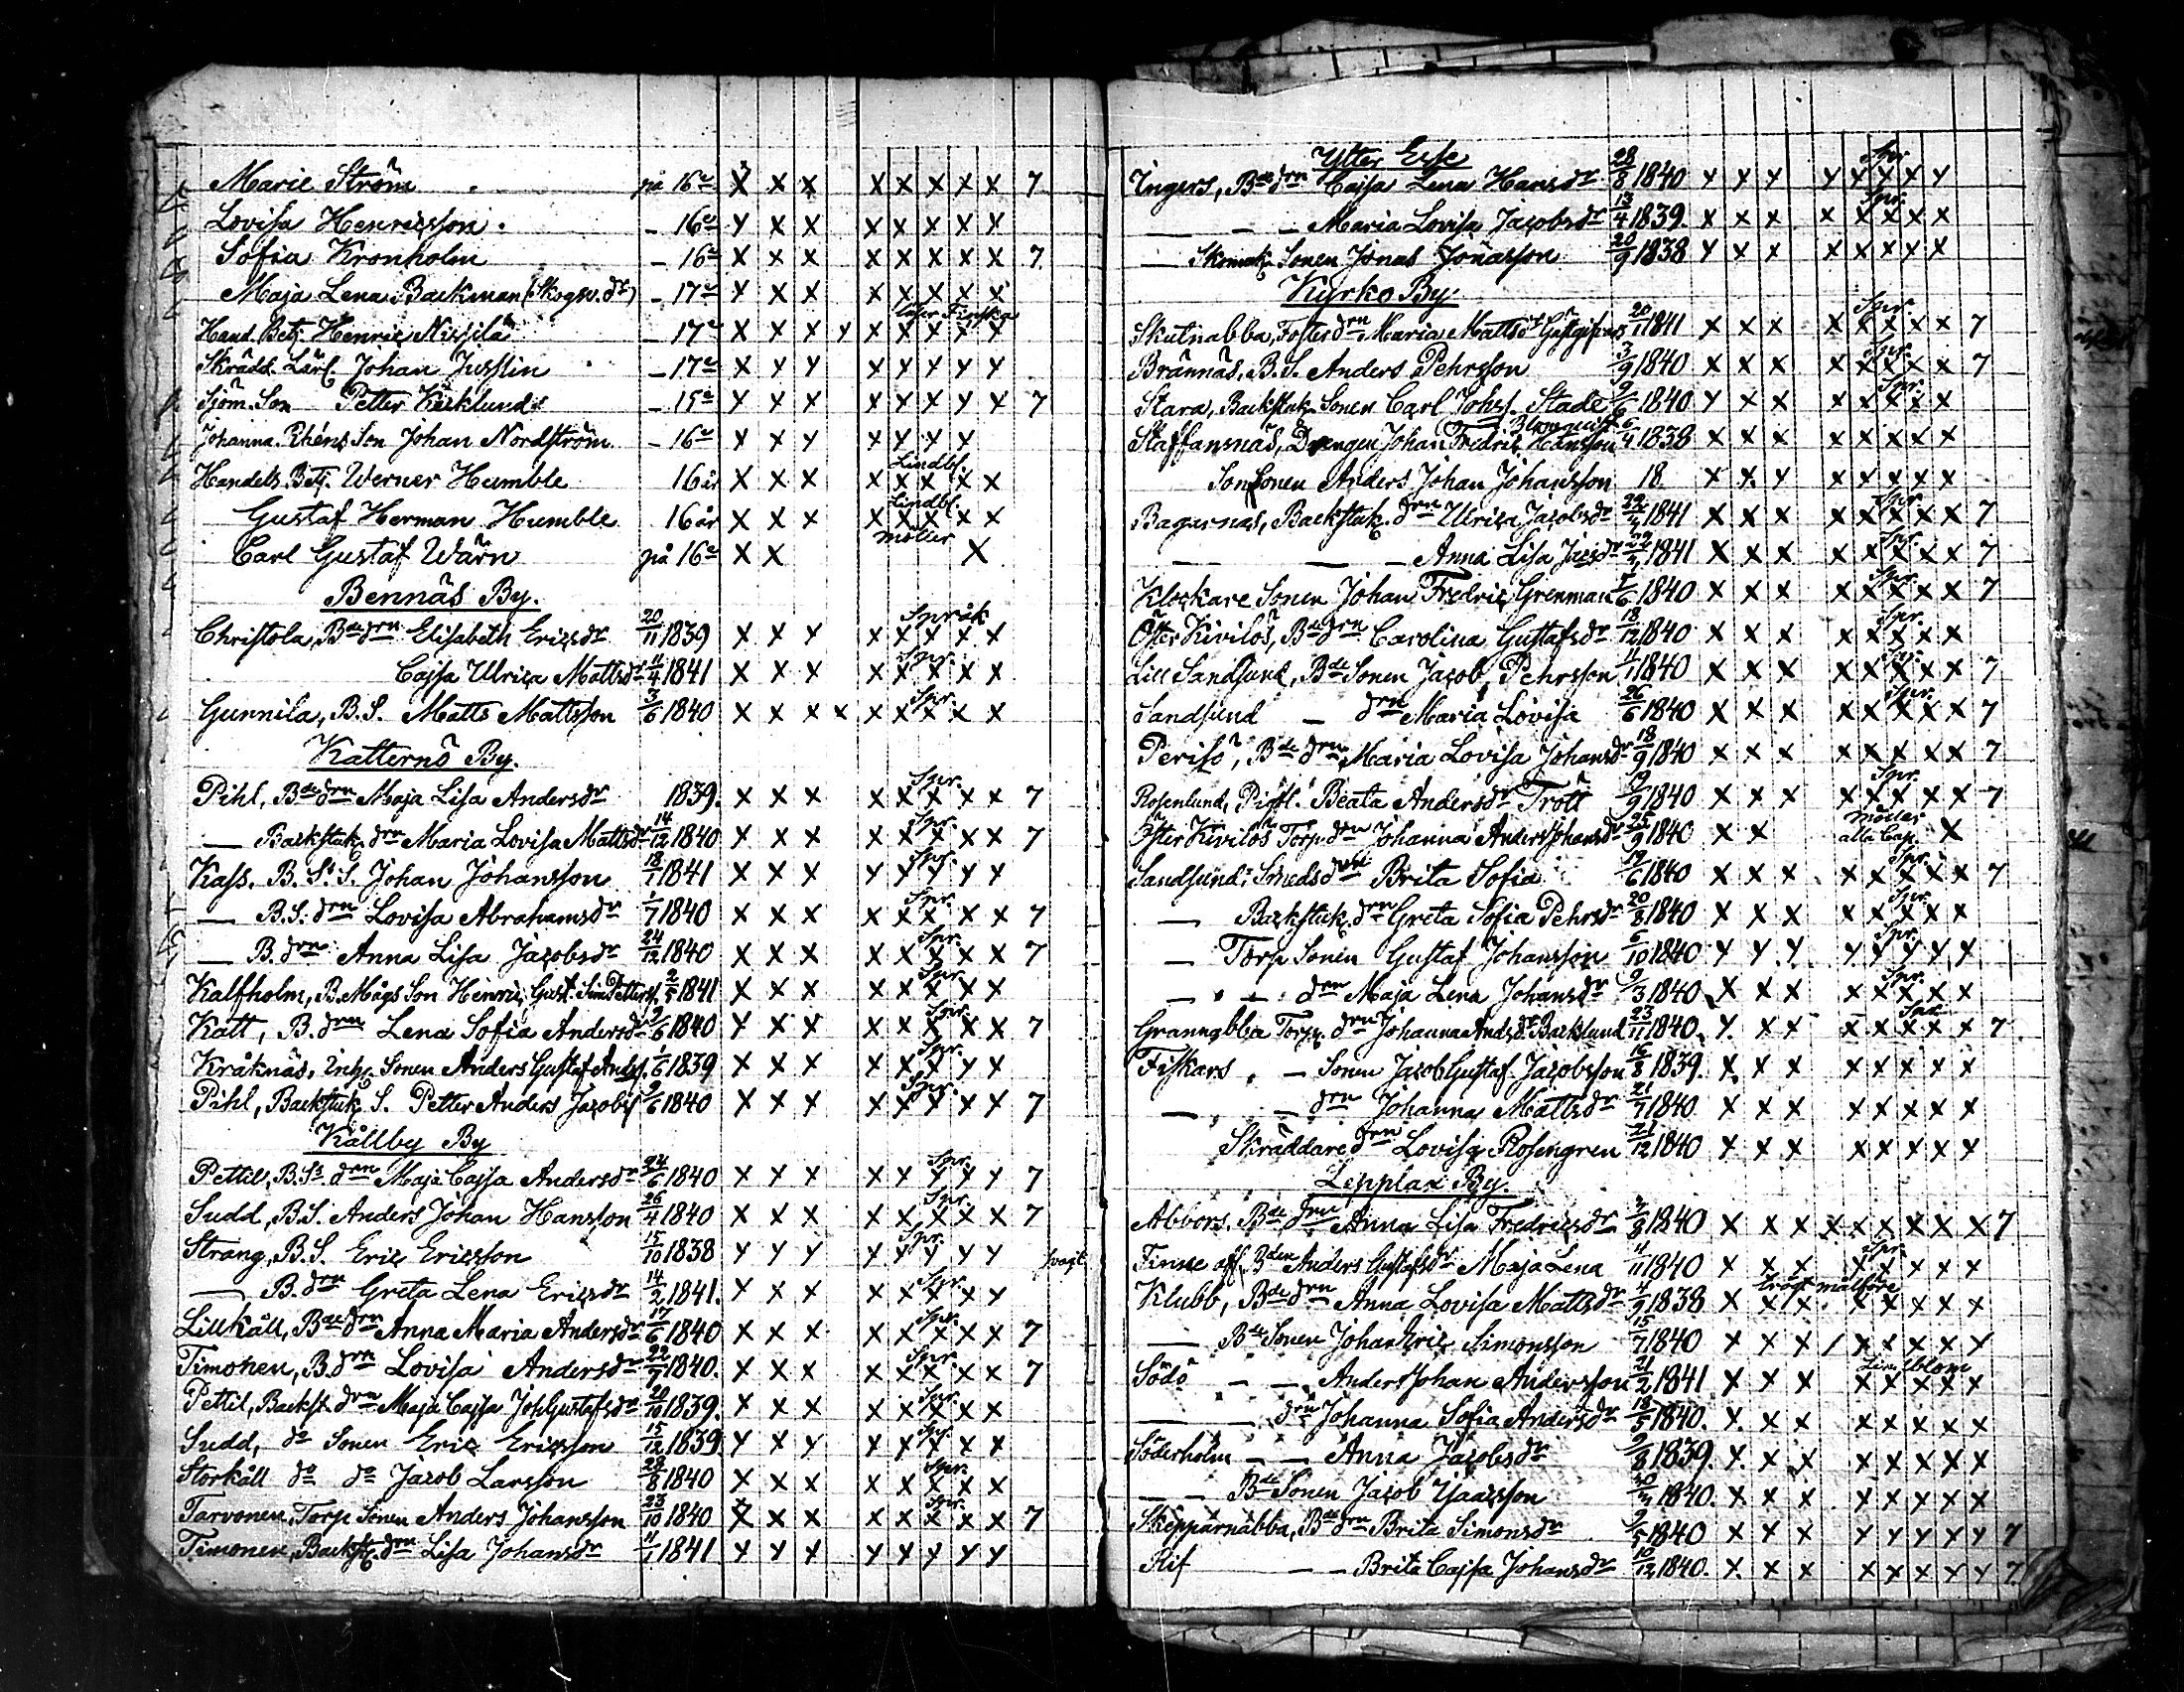 Marie Ström på 16de x x x x x x x x 7
Lovisa Henricsson. – 16de x x x x x x x x
Sofia Kronholm – 16de x x x x x x x x 7
Maja Lena Backman (Skogv. dr) – 17de x x x x x x x x
läser Finska
Hand. Betj. Henric Nissilä – 17de x x x x x x x x x
Skrädd. Lärl. Johan Jusslin – 17de x x x x x x x x
Sjöm. Son Petter Kirklund – 15de x x x x x x x x 7
Johanna Rhéns Son Johan Nordström – 16de x x x x x x x
Lindbl.
Handels Betj. Werner Humble 16 år x x x x x x x x
Lindbl.
Gustaf Herman Humble 16 år x x x x x x x x
möller
Carl Gustaf Wärn på 16de x x x
Bennäs By.
Språk
Christola, Bde drn Elisabeth Ericsdr 20/11 1839 x x x x x x x x
Spr.
Cajsa Ulrica Mattsdr 11/4 1841 x x x x x x x x
Spr.
Gunnila, B. S. Matts Mattsson 3/6 1840 x x x x x x x x x
Katternö By.
Spr.
Pihl, Bde drn Maja Lisa Andersdr 1839. x x x x x x x x 7
Spr.
— Backstuk. drn Maria Lovisa Mattsdr 14/12 1840 x x x x x x x x 7
Spr.
Kass. B. S. S. Johan Johansson 18/1 1841 x x x x x x x x
Spr.
— B. S. drn Lovisa Abrahamsdr 1/7 1840 x x x x x x x x 7
Spr.
— B. drn Anna Lisa Jacobsdr 24/12 1840 x x x x x x x x 7
Spr.
Kalfholm, B. Mågs Son Henric Gust. Sim Petters. 2/5 1841 x x x x x x x x
Spr.
Katt, B. drn Lena Sofia Andersdr 9/6 1840 x x x x x x x x 7
Spr.
Kråknäs, Inh. Sonen Anders Gustaf Anders. 1/6 1839 x x x x x x x x
Spr.
Pihl, Backstuk. S. Petter Anders Jacobss. 9/6 1840 x x x x x x x x 7
Kållby By
Spr.
Pettill, B. Ss drn Maja Cajsa Andersdr 24/6 1840 x x x x x x x x 7
Spr.
Sudd, B. S. Anders Johan Hansson 26/4 1840 x x x x x x x x 7
Spr.
Strang, B. S. Eric Ericsson 15/10 1838 x x x x x x x x svagt
Spr.
— B. drn Greta Lena Ericsdr 14/2 1841. x x x x x x x x
Spr.
Lillkåll, Bde drn Anna Maria Andersdr 17/6 1840 x x x x x x x x 7
Spr.
Timonen, B. drn Lovisa Andersdr 22/7 1840. x x x x x x x x 7
Spr.
Pettil, Backst. drn Maja Cajsa Joh Gustafsdr 20/10 1839. x x x x x x x x
Spr.
Sudd, do Sonen Eric Ericsson 15/12 1839 x x x x x x x x
Spr.
Storkåll do do Jacob Larsson 28/8 1840 x x x x x x x x
Spr.
Tarvonen, Torp Sonen Anders Johansson 23/10 1840 x x x x x x x x 7
Timonen, Backst. drn Lisa Johansdr 11/1 1841 x x x x x x x x
Ytter Esse
Spr
Ingers, Bde drn Cajsa Lena Hansdr 28/8 1840 x x x x x x x x
Spr.
— – – Maria Lovisa Jacobsdr 13/4 1839. x x x x x x x x
— Skomak. Sonen Jonas Jonasson 20/9 1838 x x x x x x x x
Kyrko By
Spr.
Skutnabba, Foster drn Maria Mattsdr 20/1 1841 x x x x x x x x 7
Spr.
Brännäs, B. S. Anders Pehrsson 3/9 1840 x x x x x x x x 7
Spr.
Stara, Backstuk. Sonen Carl Johss. Stade 9/6 1840 x x x x x x x x
Blomquist
Staffansnäs, Drengen Johan Fredric Hansson 6/4 1838 x x x x x x x x
Son Sonen Anders Johan Johansson 18 x x x x x x x x
Spr.
Bagarnäs, Backstuk. drn Ulrica Jacobsdr 1841 x x x x x x x x 7
Spr.
— — – Anna Lisa Jacsdr 1841 x x x x x x x x 7
Spr.
Klockare Sonen Johan Fredric Grenman 1/6 1840 x x x x x x x x 7
Spr.
Öster Kivilös, Bde drn Carolina Gustafsdr 18/12 1840 x x x x x x x x
Spr.
Lill Sandsund, Bde Sonen Jacob Pehrsson 11/1 1840 x x x x x x x x 7
Spr.
Sandsund – drn Maria Lovisa 26/6 1840 x x x x x x x x 7
Perisö, Bde drn Maria Lovisa Johansdr 18/9 1840 x x x x x x x x 7
Spr.
Rosenlund, Pigb. Beata Andersdr Trött 19/9 1840 x x x x x x x x 7
möller
Öster Kivilös Torp. drn Johanna Anders Johansdr 25/9 1840 x x alla Cap. x
Spr.
Sandsund, Smeds drn Brita Sofia 19/6 1840 x x x x x x x x 7
Spr.
— Backstuk. drn Greta Sofia Pehrsdr 20/8 1840 x x x x x x x x
Spr.
— Torp Sonen Gustaf Johansson 6/10 1840 x x x x x x x x
Spr.
— – drn Maja Lena Johansdr 9/3 1840 x x x x x x x x
Spr.
Grannabba Torp. drn Johanna Andsdr Backlund 23/11 1840. x x x x x x x x 7
Fiskars, – Sonen Jacob Gustaf Jacobsson 16/8 1839. x x x x x x x x
—, – drn Johanna Mattsdr 21/7 1840 x x x x x x x x
Skräddare drn Lovisa Rosengren 21/12 1840 x x x x x x x x
Lepplax By.
Abbors. Bde drn Anna Lisa Fredricsdr 3/8 1840 x x x x x x x x x 7
Spr.
Finne aff. Bden Anders Gustafsdr Maja Lena 11/11 1840 x x x x x x x x
trögt målföre
Klubb, Bde drn Anna Lovisa Mattsdr 1/9 1838 x x x x x x x x
— Bde Sonen Johan Eric Simonsson 15/7 1840 x x x / x x x x x
Lindblom
Södö – – Anders Johan Andersson 21/2 1841 x x x x x x x x
— – drn Johanna Sofia Andersdr 18/5 1840. x x x x x x x x
Söderholm – – Anna Jacobsdr 9/8 1839. x x x x x x x x
— – Bde Sonen Jacob Isacsson 1840. x x x x x x x x
Skepparnabba, Bde drn Brita Simonsdr 9/5 1840 x x x x x x x x 7
Rif – – Brita Cajsa Johansdr 10/12 1840. x x x x x x x x 7